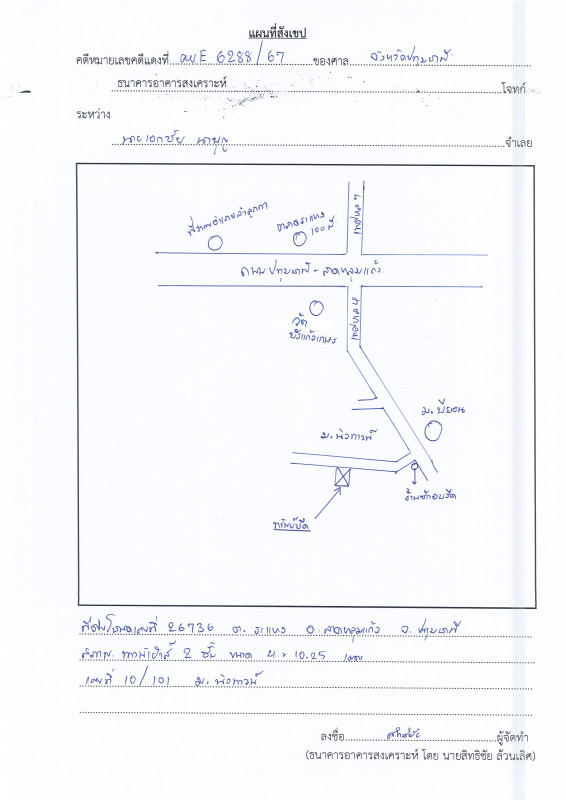 แผนที่สังเขป
คดีหมายเลขคดีแดงที่ ผบE 6288/67 ของศาล จังหวัดปทุมธานี
ธนาคารอาคารสงเคราะห์ โจทก์
ระหว่าง
นายเอกชัย จำเลย
ที่ว่าการอำเภอลำลูกกา
ตลาดระแหง
100 ปี
ถนน ปทุมธานี - ลาดหลุมแก้ว
วัด
บัวแก้วเกษร
ม.
ม.
ร้าน
ทรัพย์ยึด
ที่ดินโฉนดเลขที่ 26736 ต. ระแหง อ. ลาดหลุมแก้ว จ. ปทุมธานี
สภาพ ทาวน์เฮ้าส์ 2 ชั้น ขนาด 4 × 10.25 เมตร
เลขที่ 10/101 ม.
ลงชื่อ ผู้จัดทำ
(ธนาคารอาคารสงเคราะห์ โดย นายสิทธิชัย ล้วนเลิศ)